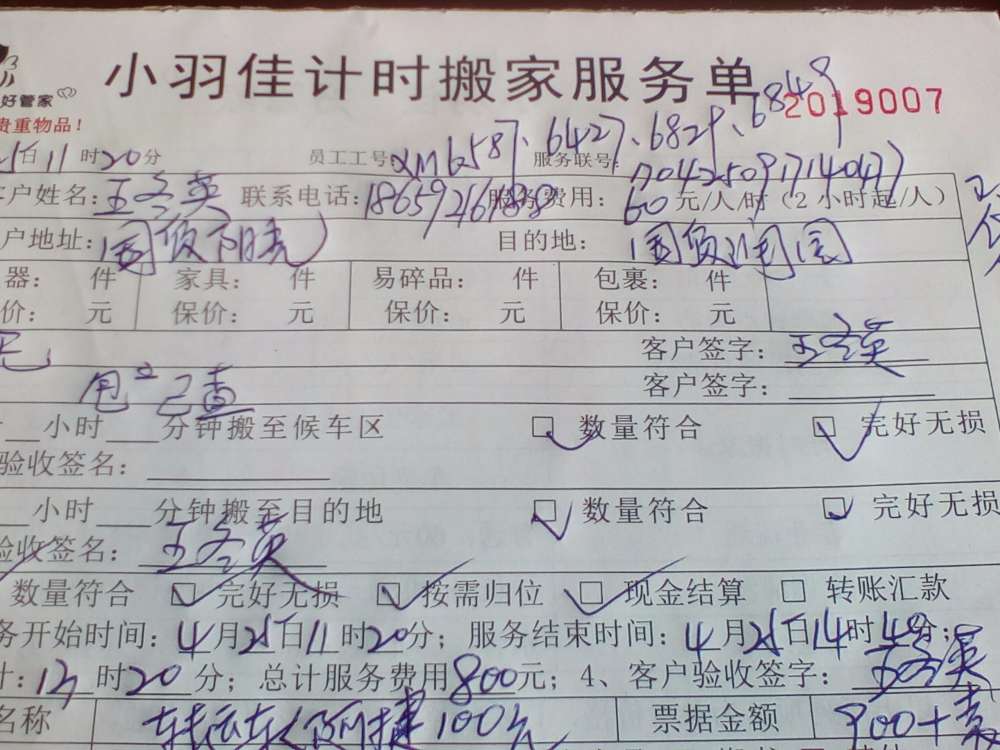 小羽佳计时搬家服务单
好管家
贵重物品!
2019007
25日11时20分 员工工号 XM6587、6427、6829、6848 服务联号:
客户姓名:王冬英 联系电话: 服务费用:60元/人/时(2小时起/人)
户地址:国贸阳光 目的地:国贸润园
器: 件 家具: 件 易碎品: 件 包裹: 件
价: 元 保价: 元 保价: 元 保价: 元
客户签字:王冬英
已查 客户签字:
小时 分钟搬至候车区 □ 数量符合 □ 完好无损
验收签名:
小时 分钟搬至目的地 □ 数量符合 □ 完好无损
验收签名:王冬英
数量符合 □ 完好无损 □ 按需归位 □ 现金结算 □ 转账汇款
务开始时间:4月25日11时20分;服务结束时间:4月25日14时40分;
计:13时20分;总计服务费用800元;4、客户验收签字:王冬英
名称 100元 票据金额 900+